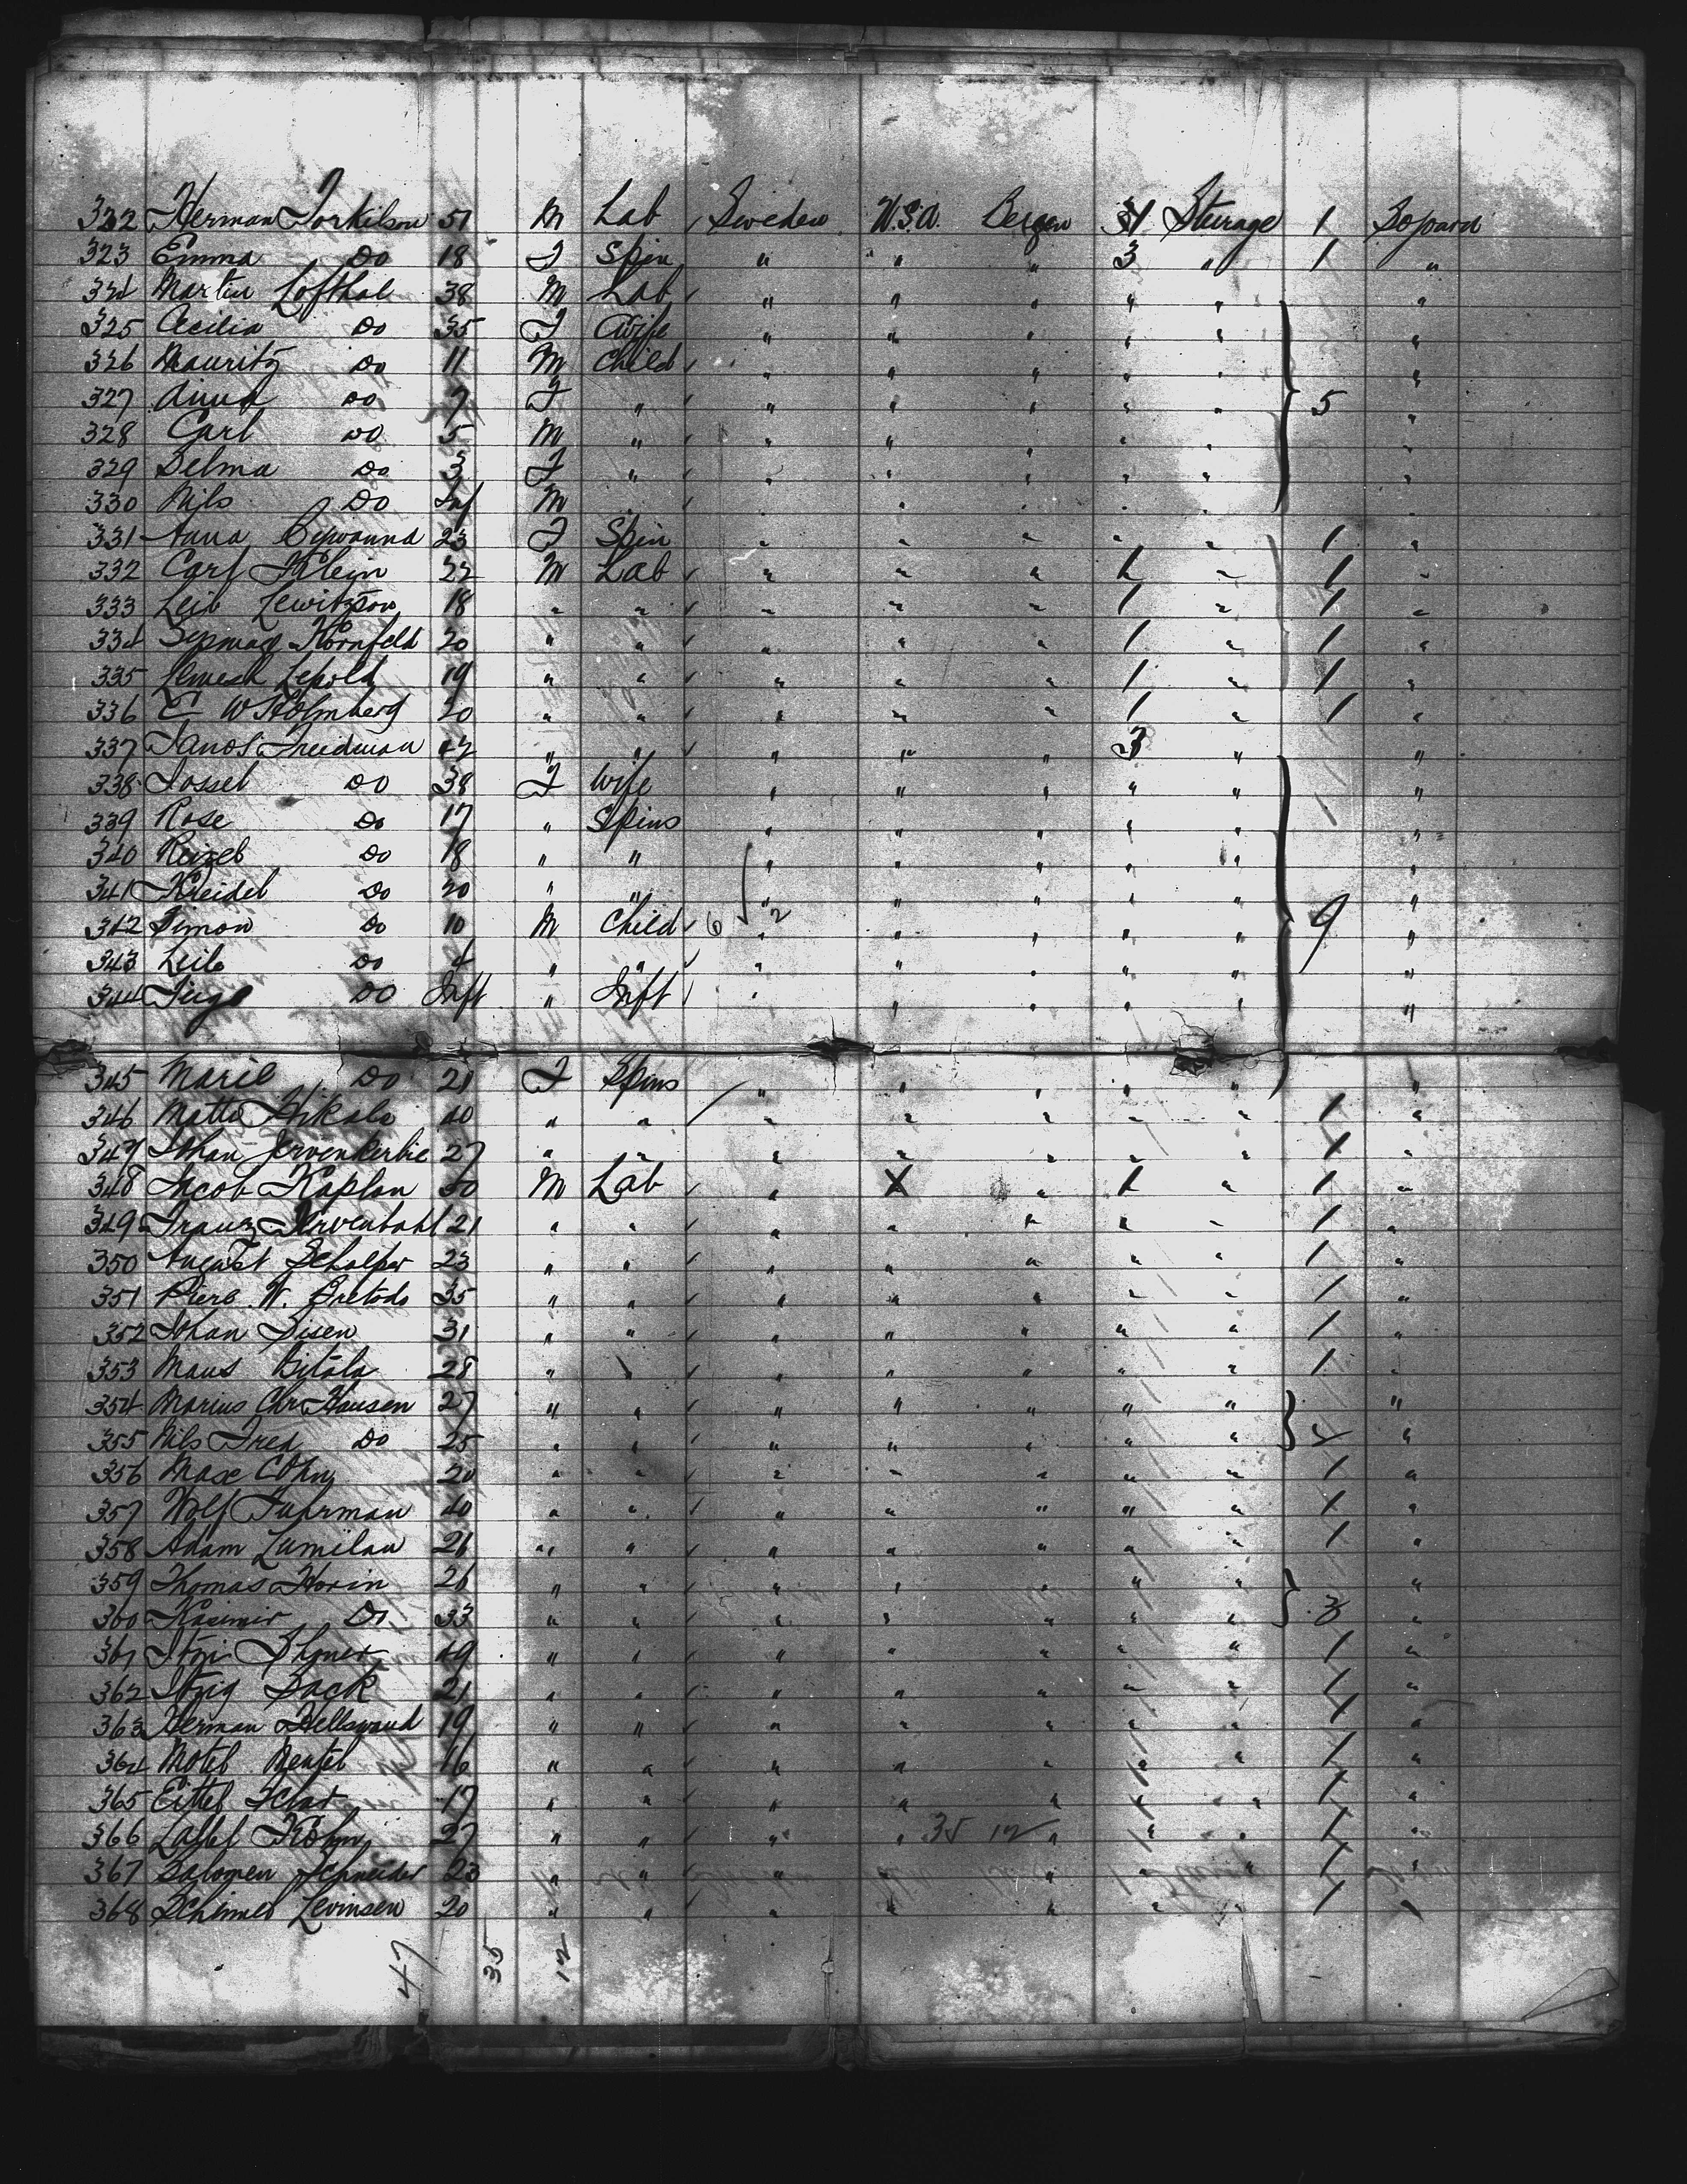 322 Herman Torkilson 51 M Lab Sweden U.S.A. Bergen 1 Sturage 1 Sojourn
323 Emma Do 18 F Spin " " " 3 " 1 "
324 Martin Lofthal 38 M Lab " " " " " "
325 Cecilia Do 35 F Wife " " " " " "
326 Mauritz Do 11 M Child " " " " " "
327 Anna Do 7 F " " " " " " 5 "
328 Carl Do 5 M " " " " " " "
329 Selma Do 3 F " " " " " " "
330 Nils Do Inf M " " " " " "
331 Anna 23 F Spin " " " " " 1 "
332 Carl Klein 22 M Lab " " " 1 " 1 "
333 Leib Lewitzson 18 " " " " " 1 " 1 "
334 Kornfeld 20 " " " " " 1 " 1 "
335 Lepold 19 " " " " " 1 " 1 "
336 W Holmberg 20 " " " " " 1 " 1 "
337 Janos Freidman 42 " " " " " 3 " "
338 Jossel Do 38 F Wife " " " " " "
339 Rose Do 17 " Spins " " " " " "
340 Reizel Do 18 " " " " " " " "
341 Kreidel Do 20 " " " " " " " "
342 Simon Do 10 M Child 6 2 " " " " " 9 "
343 Leib Do 4 " " " " " " " "
344 Do Inft " Inft " " " " " "
345 Marie Do 21 F Spins " " " " " "
346 Matts Hikala 40 " " " " " " " 1 "
347 Johan 27 " " " " " " " 1 "
348 Jacob Kaplan 30 M Lab " X " 1 " 1 "
349 Franz 21 " " " " " " " 1 "
350 August 23 " " " " " " " 1 "
351 W. 35 " " " " " " " 1 "
352 Johan Sisen 31 " " " " " " " 1 "
353 Maus 28 " " " " " " " 1 "
354 Marius Chr Hansen 27 " " " " " " " "
355 Nils Fred Do 25 " " " " " " " 2 "
356 Max Cohn 20 " " " " " " " 1 "
357 Wolf Fuhrman 40 " " " " " " " 1 "
358 Adam Zumilan 26 " " " " " " " 1 "
359 Thomas Horin 26 " " " " " " " "
360 Kasimir Do 33 " " " " " " " "
361 19 " " " " " " " 1 "
362 Itzig Sack 21 " " " " " " " 1 "
363 Herman 19 " " " " " " " 1 "
364 Motel Mentel 16 " " " " " " " 1 "
365 Eittel 17 " " " " " " " 1 "
366 Kohn 27 " " " " 35 12 " " " 1 "
367 Salomen Schneider 23 " " " " " " " 1 "
368 Levinsen 20 " " " " " " " 1 "
47 35 12